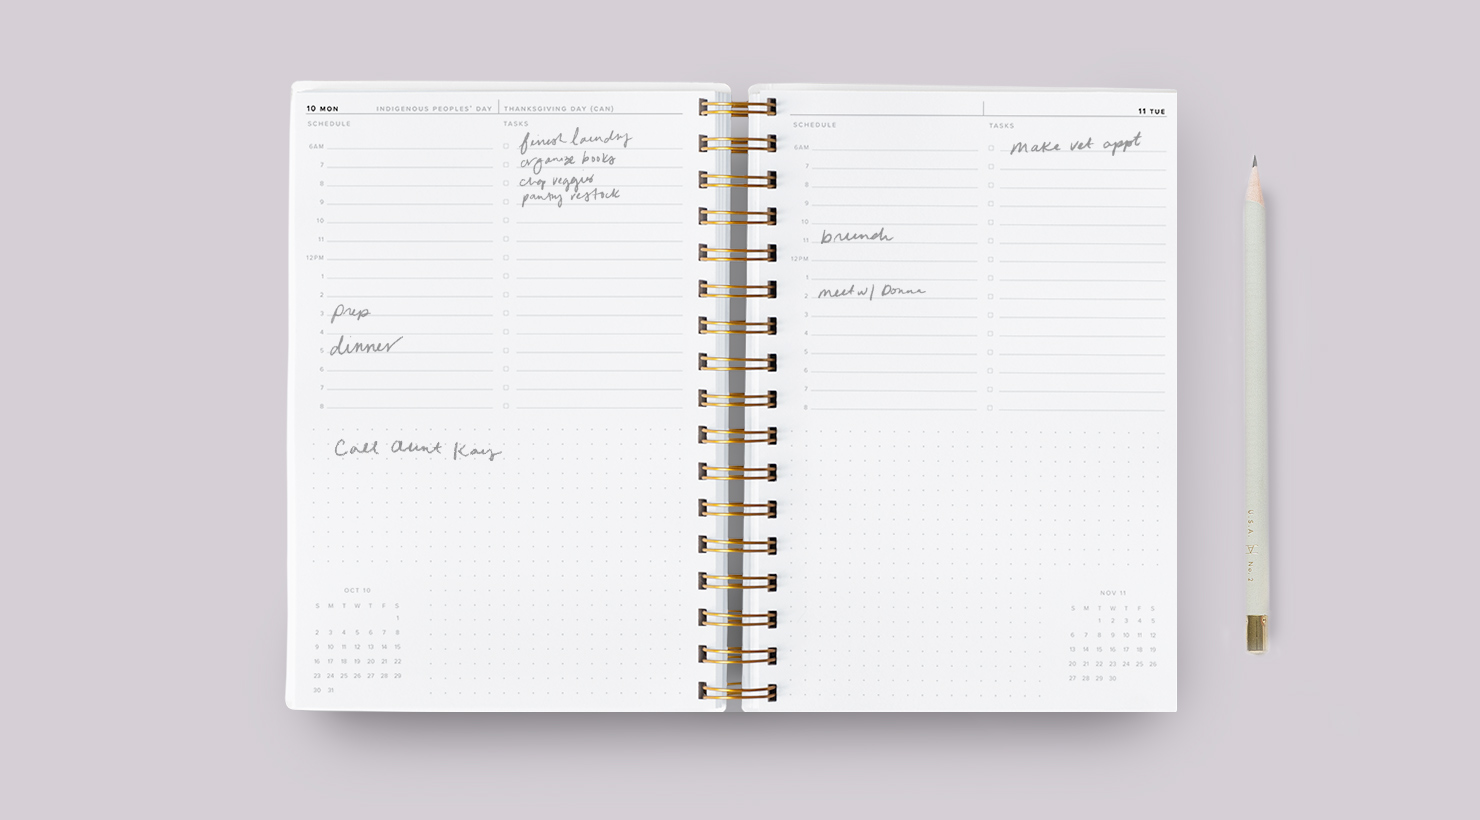 10 MON INDIGENOUS PEOPLES' DAY THANKSGIVING DAY (CAN)
SCHEDULE
6AM
7
8
9
10
11
12PM
1
2
3 prep
4
5 dinner
6
7
8
TASKS
finish laundry
organize books
chop veggies
pantry restock
Call Aunt Kay
OCT 10
S M T W T F S
1
2 3 4 5 6 7 8
9 10 11 12 13 14 15
16 17 18 19 20 21 22
23 24 25 26 27 28 29
30 31
11 TUE
SCHEDULE
6AM
7
8
9
10
11 brunch
12PM
1
2 meet w/ Donna
3
4
5
6
7
8
TASKS
make vet appt
NOV 11
S M T W T F S
1 2 3 4 5
6 7 8 9 10 11 12
13 14 15 16 17 18 19
20 21 22 23 24 25 26
27 28 29 30
U.S.A. No. 2